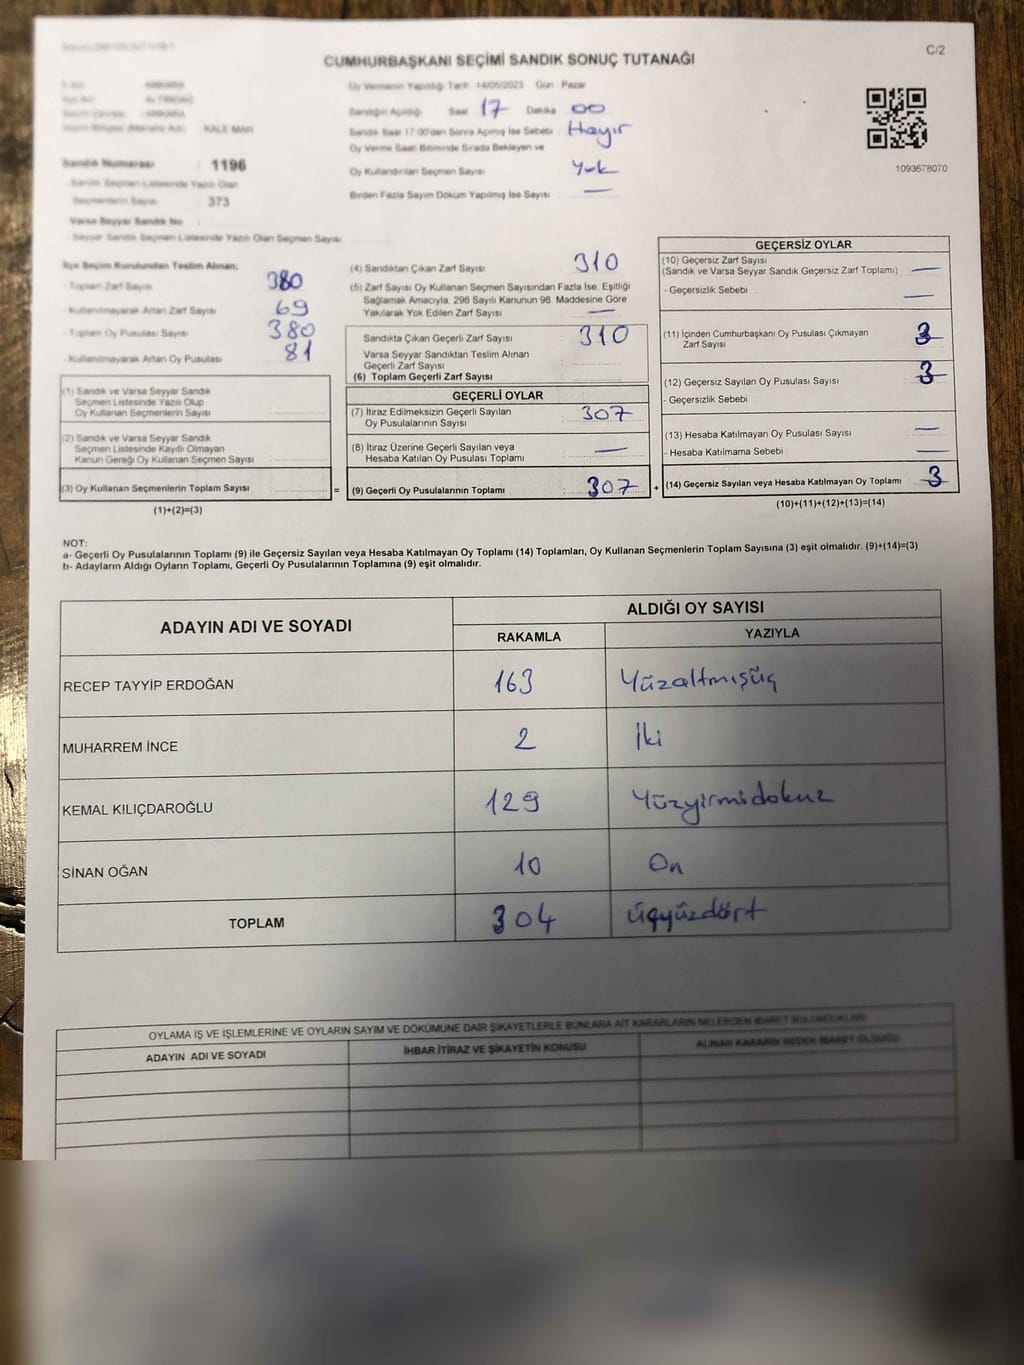 CUMHURBAŞKANI SEÇİMİ SANDIK SONUÇ TUTANAĞI
C/2
Oy Vermenin Yapıldığı Tarih 14/05/2023 Gün Pazar
Sandığın Açıldığı Saat 17 Dakika 00
Sandık Saat 17:00'den Sonra Açılmış İse Sebebi Hayır
Oy Verme Saati Bitiminde Sırada Bekleyen ve
Oy Kullandırılan Seçmen Sayısı Yok
Birden Fazla Sayım Döküm Yapılmış İse Sayısı —
1093678070
KALE MAH
Sandık Numarası : 1196
Sandık Seçmen Listesinde Yazılı Olan
Seçmenlerin Sayısı : 373
Varsa Seyyar Sandık No
- Seyyar Sandık Seçmen Listesinde Yazılı Olan Seçmen Sayısı
İlçe Seçim Kurulundan Teslim Alınan;
- Toplam Zarf Sayısı 380
- Kullanılmayarak Artan Zarf Sayısı 69
- Toplam Oy Pusulası Sayısı 380
- Kullanılmayarak Artan Oy Pusulası 81
(1) Sandık ve Varsa Seyyar Sandık
Seçmen Listesinde Yazılı Olup
Oy Kullanan Seçmenlerin Sayısı
(2) Sandık ve Varsa Seyyar Sandık
Seçmen Listesinde Kayıtlı Olmayan
Kanun Gereği Oy Kullanan Seçmen Sayısı
(3) Oy Kullanan Seçmenlerin Toplam Sayısı =
(1)+(2)=(3)
(4) Sandıktan Çıkan Zarf Sayısı 310
(5) Zarf Sayısı Oy Kullanan Seçmen Sayısından Fazla İse, Eşitliği
Sağlamak Amacıyla, 298 Sayılı Kanunun 98. Maddesine Göre
Yakılarak Yok Edilen Zarf Sayısı —
Sandıkta Çıkan Geçerli Zarf Sayısı 310
Varsa Seyyar Sandıktan Teslim Alınan
Geçerli Zarf Sayısı
(6) Toplam Geçerli Zarf Sayısı
GEÇERLİ OYLAR
(7) İtiraz Edilmeksizin Geçerli Sayılan
Oy Pusulalarının Sayısı 307
(8) İtiraz Üzerine Geçerli Sayılan veya
Hesaba Katılan Oy Pusulası Toplamı —
(9) Geçerli Oy Pusulalarının Toplamı 307 +
GEÇERSİZ OYLAR
(10) Geçersiz Zarf Sayısı
(Sandık ve Varsa Seyyar Sandık Geçersiz Zarf Toplamı) —
- Geçersizlik Sebebi : —
(11) İçinden Cumhurbaşkanı Oy Pusulası Çıkmayan
Zarf Sayısı 3
(12) Geçersiz Sayılan Oy Pusulası Sayısı 3
- Geçersizlik Sebebi :
(13) Hesaba Katılmayan Oy Pusulası Sayısı —
- Hesaba Katılmama Sebebi : —
(14) Geçersiz Sayılan veya Hesaba Katılmayan Oy Toplamı 3
(10)+(11)+(12)+(13)=(14)
NOT:
a- Geçerli Oy Pusulalarının Toplamı (9) ile Geçersiz Sayılan veya Hesaba Katılmayan Oy Toplamı (14) Toplamları, Oy Kullanan Seçmenlerin Toplam Sayısına (3) eşit olmalıdır. (9)+(14)=(3)
b- Adayların Aldığı Oyların Toplamı, Geçerli Oy Pusulalarının Toplamına (9) eşit olmalıdır.
ADAYIN ADI VE SOYADI
ALDIĞI OY SAYISI
RAKAMLA YAZIYLA
RECEP TAYYİP ERDOĞAN 163 Yüzaltmışüç
MUHARREM İNCE 2 İki
KEMAL KILIÇDAROĞLU 129 Yüzyirmidokuz
SİNAN OĞAN 10 On
TOPLAM 304 üçyüzdört
OYLAMA İŞ VE İŞLEMLERİNE VE OYLARIN SAYIM VE DÖKÜMÜNE DAİR ŞİKAYETLERLE BUNLARA AİT KARARLARIN NELERDEN İBARET BULUNDUKLARI
ADAYIN ADI VE SOYADI İHBAR İTİRAZ VE ŞİKAYETİN KONUSU ALINAN KARARIN NEDEN İBARET OLDUĞU